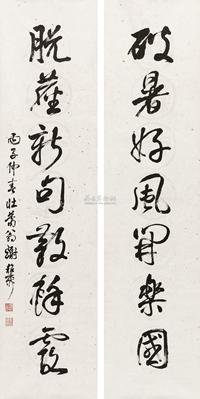 破暑好風開樂國
脫蘿新句散餘霞
丙子仲春壯暮翁謝稚柳